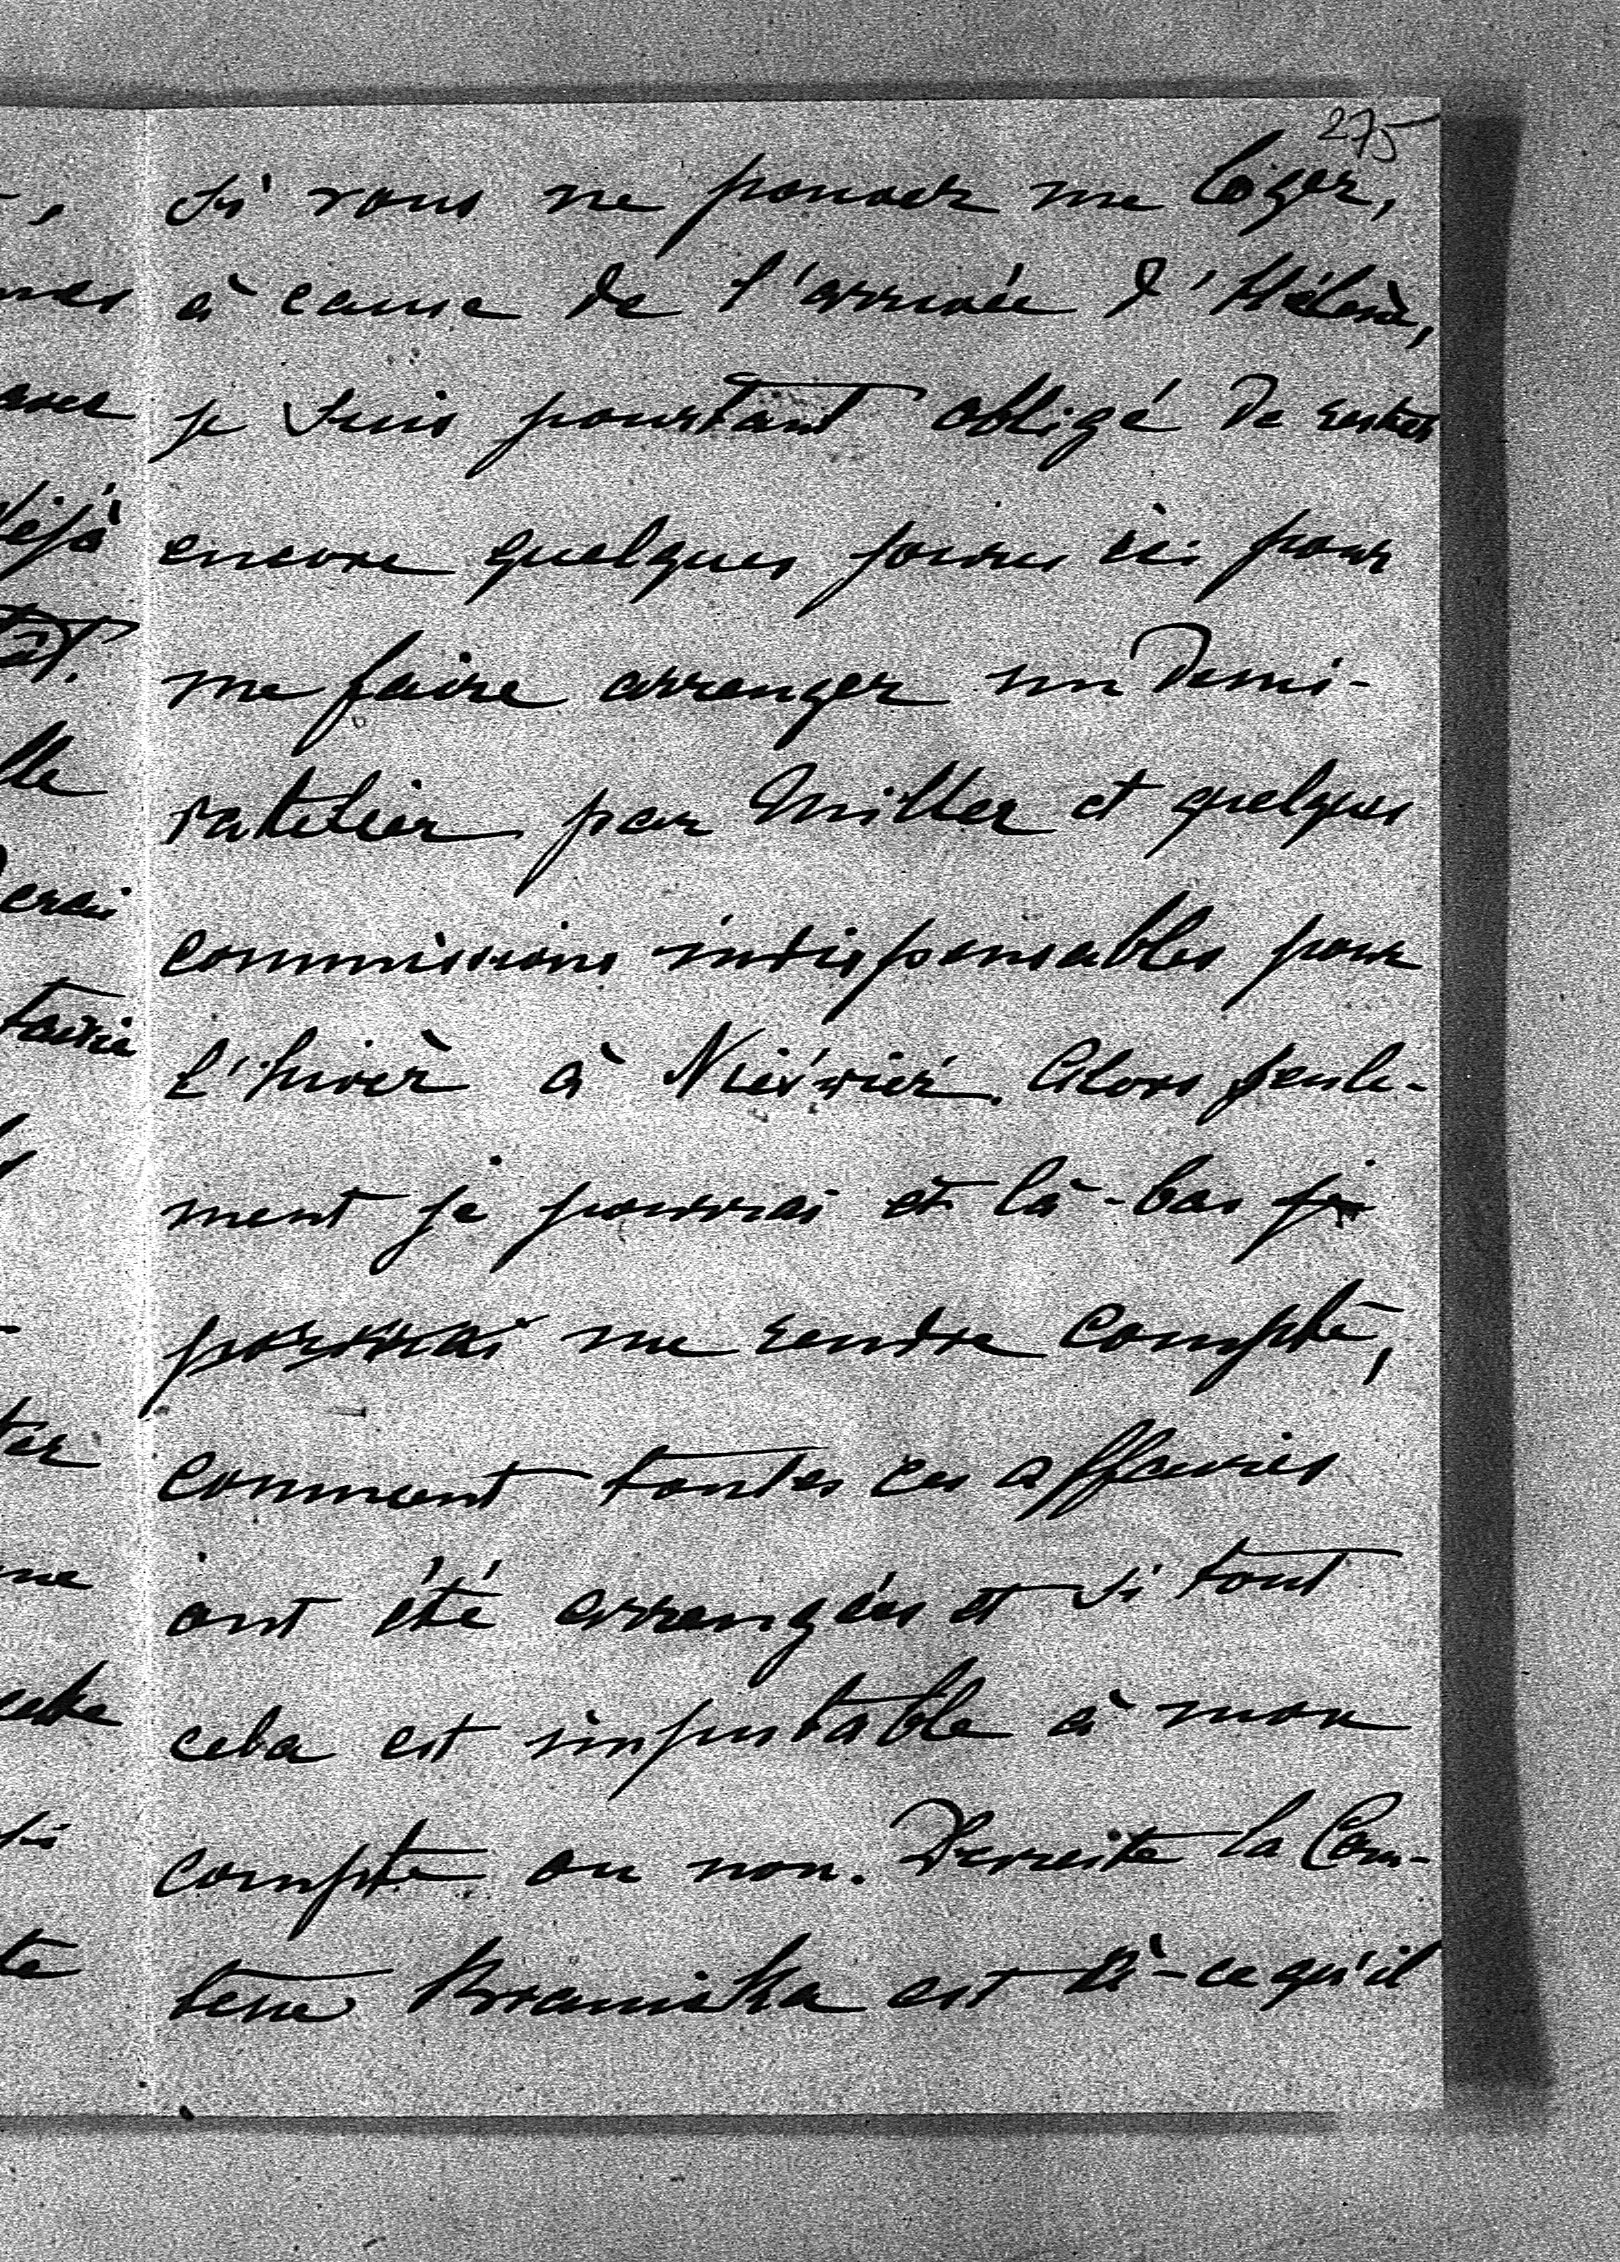 275
si vous ne pouvez me loger,
à cause de l'arrivée d'Hélène,
je suis pourtant obligé de rester
encore quelques jours ici pour
me faire arranger un demi-
ratelier par Miller et quelques
commissions indispensables pour
l'hiver à Niéśwież. Alors seule-
ment je pourrai et là-bas je
pourrai me rendre compte,
comment toutes ces affaires
ont été arrangées et si tout
cela est imputable à mon
compte ou non. Ensuite la Com-
tesse Branicka est là-ce qu'il
déjà